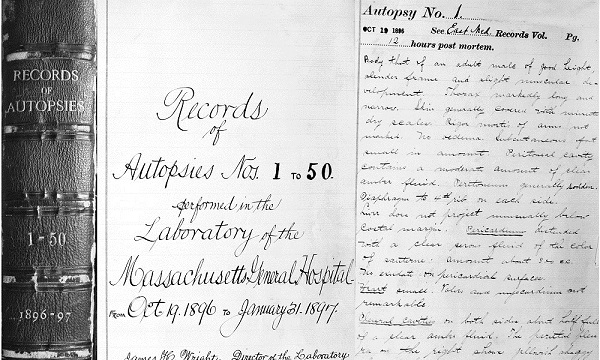 RECORDS
OF
AUTOPSIES
1-50
1896-97
Records
of
Autopsies Nos. 1 TO 50.
performed in the
Laboratory of the
Massachusetts General Hospital
From Oct 19. 1896 to January 31. 1897.
James H. Wright, Director of the Laboratory.
Autopsy No. 1.
OCT 19 1896 See East Med. Records Vol. Pg.
12 hours post mortem.
Body that of an adult male of good height,
slender frame and slight muscular de-
velopment. Thorax markedly long and
narrow. Skin generally covered with minute
dry scales. Rigor mortis of arms not
marked. No oedema. Subcutaneous fat
small in amount. Peritoneal cavity
contains a moderate amount of clear
amber fluid. Peritoneum generally
Diaphragm to rib on each side.
Liver does not project unusually below
costal margin. Pericardium distended
with a clear serous fluid of the color
of amount about
No exudate on pericardial surfaces.
Heart small. Valves and myocardium not
remarkable.
Pleural cavities on both sides about half full
of a clear amber fluid. The parietal pleu-
ra on the right shows